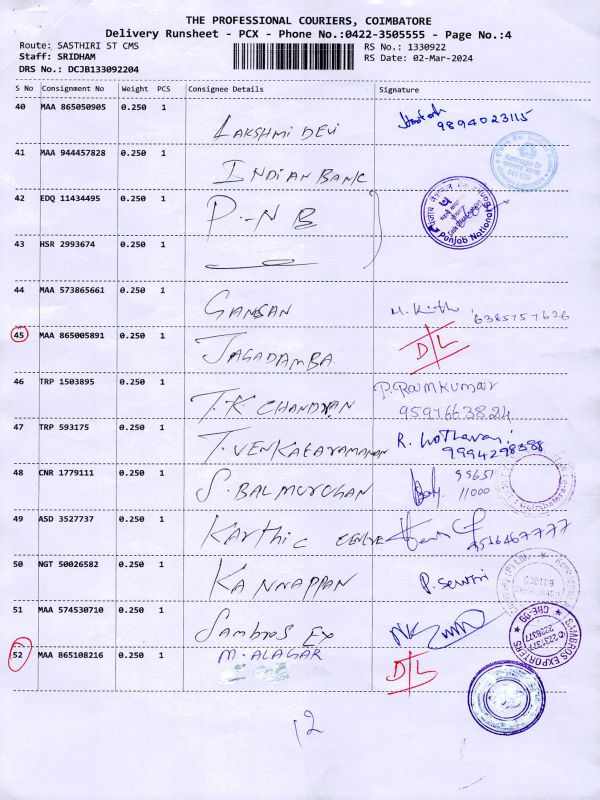 THE PROFESSIONAL COURIERS, COIMBATORE
Delivery Runsheet - PCX - Phone No.:0422-3505555 - Page No.:4
Route: SASTHIRI ST CMS
RS No.: 1330922
Staff: SRIDHAM
RS Date: 02-Mar-2024
DRS No.: DCJB133092204
S No Consignment No Weight PCS Consignee Details Signature
40 MAA 865050905 0.250 1
LAKSHMI DEVI 9894023115
41 MAA 944457828 0.250 1
INDIAN BANK
42 EDQ 11434495 0.250 1
P-NB
Punjab National
43 HSR 2993674 0.250 1
44 MAA 573865661 0.250 1
GANESAN 6385757626
45 MAA 865005891 0.250 1
JAGADAMBA D/L
46 TRP 1503895 0.250 1
T.K CHANDRAN P. Ramkumar
9597663824
47 TRP 593175 0.250 1
T. VENKATARAMANAN 9994298388
48 CNR 1779111 0.250 1
S. BALMURUGAN 99651
11000
49 ASD 3527737 0.250 1
KARTHIC CENTRE
50 NGT 50026582 0.250 1
KANNAPPAN
51 MAA 574530710 0.250 1
Sambros Ex
SAMBROS EXPORTERS
CBE-09
52 MAA 865108216 0.250 1
M. ALAGAR D/L
12